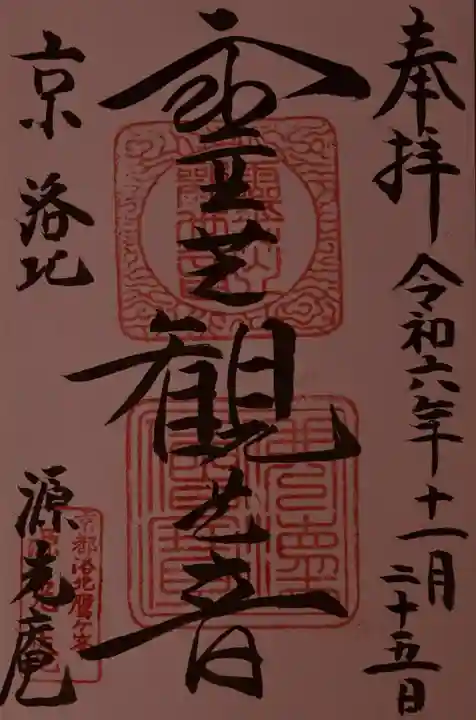 奉拝
令和六年十一月
二十五日
霊芝観世音
京 洛北
源光庵
京都洛北鷹ケ峯